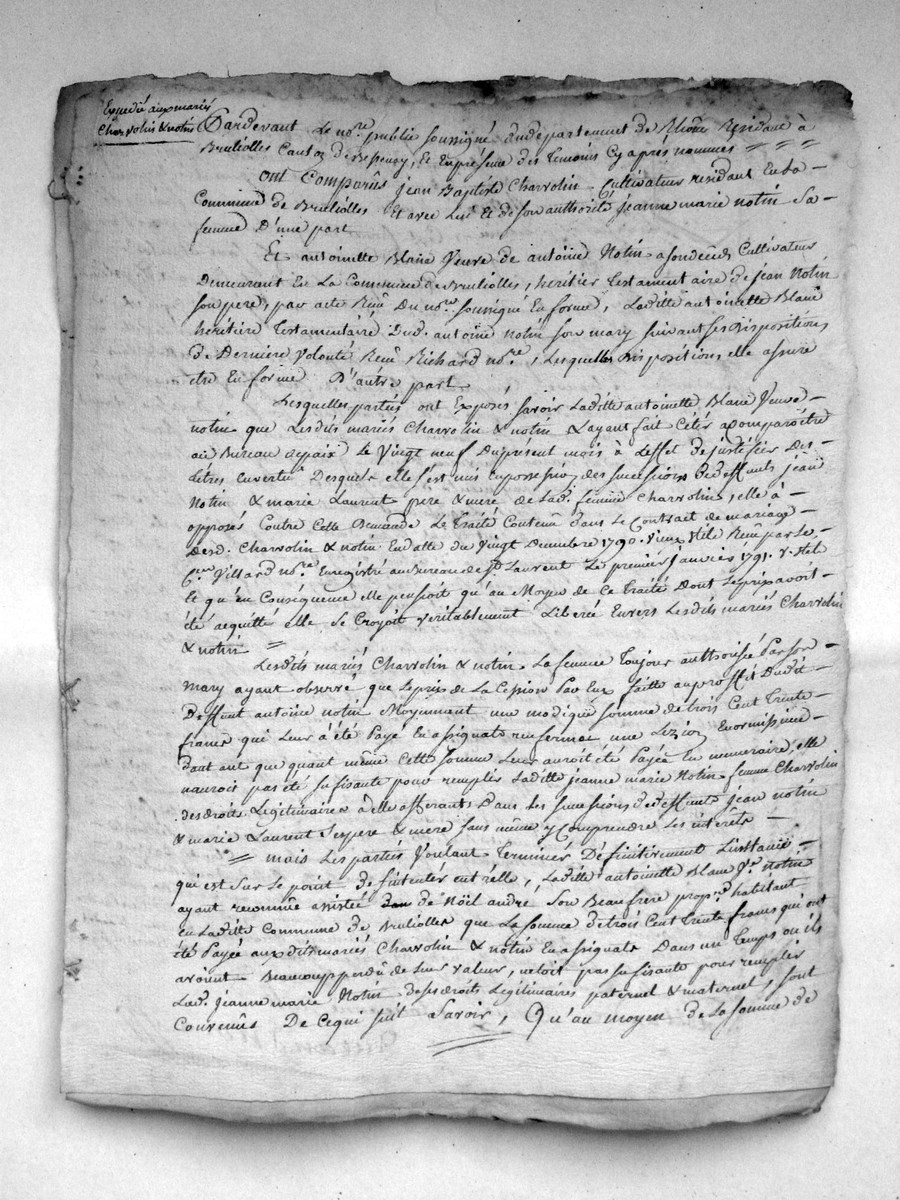 Expedié aux mariés
Charvolin & notin
Pardevant Le nore public soussigné du departement du Rhône Residant à
Brulliolles Canton de Bessenay, et en présence des Temoins cy après nommés
ont Comparûs jean Baptiste Charvolin Cultivateur residant en la
Commune de Brulliolles et avec lui et de son authorité jeanne marie notin sa
femme D'une part
Et antoinette Blanc Veuve de antoine Notin Cultivateur
Demeurant en La Commune de Brulliolles, héritier Testamentaire de jean Notin
son pere, par acte Reçu Du nore soussigné en forme, Laditte antoinette Blanc
héritiere Testamentaire Dud. antoine notin son mary suivant ses Dispositions
de Derniere Volonté Reçu Richard nore, Lesquelles Dispositions elle assure
etre en forme D'autre part
Lesquelles parties ont Exposés savoir Laditte antoinette Blanc Veuve
notin que Lesdits mariés Charvolin & notin L'ayant fait Citer a comparoître
au Bureau de paix Le Vingt neuf Du présent mois à L'effet de justifier des
titres en vertu Desquels elle s'est mis en possession des successions de deffunts jean
Notin & marie Laurent pere & mere de Lad. femme Charvolin, elle a
opposés Contre Cette Demande Le Traité Contenu Dans Le Contrat de mariage
Desd. Charvolin & notin En datte du Vingt Decembre 1790. vieux stile Reçu par Le
Cen Villard nore Enregistré au Bureau de St Laurent Le premier janvier 1791. v. stil
Et qu'en Conséquence elle pensoit qu'au Moyen de Ce Traité Dont Le prix avoit
été acquitté elle se Croyoit véritablement Liberée Envers Lesdits mariés Charvolin
& notin
Lesdits mariés Charvolin & notin La femme Toujour authorisée Par son
mary ayant observé que Le prix de La Cession Par Eux faitte au proffit Dudit
Deffunt antoine notin Moyennant une modique somme de trois Cent Trente
francs qui Leur a été Payé En assignats renfermoit une Lezion Enormissime
D'autant que quant même Cette somme Leur auroit été Payée En numeraire, elle
n'auroit pas été suffisante pour remplir Laditte jeanne marie Notin femme Charvolin
des droits Legitimaires à elle afferants Dans Les successions de deffunts jean notin
& marie Laurent ses pere & mere sans même y Comprendre Les intérêts
mais Les parties Voulant Terminer Définitivement L'instance
qui est sur Le point de s'intenter entr'elle, Laditte antoinette Blanc Ve notin
ayant reconnue assistée de Nöel andré son Beau frere propre habitant
En Laditte Commune de Brulliolles que La somme de trois Cent Trente francs qui ont
été Payée auxdits mariés Charvolin & notin En assignats Dans un Temps où ils
avoient Beaucoup perdû de Leur valeur, n'etoit pas suffisante pour remplir
Lad. jeanne marie Notin de ses droits Legitimaires paternel & maternel, sont
Convenûs De Ce qui suit Savoir, Qu'au moyen de La somme de